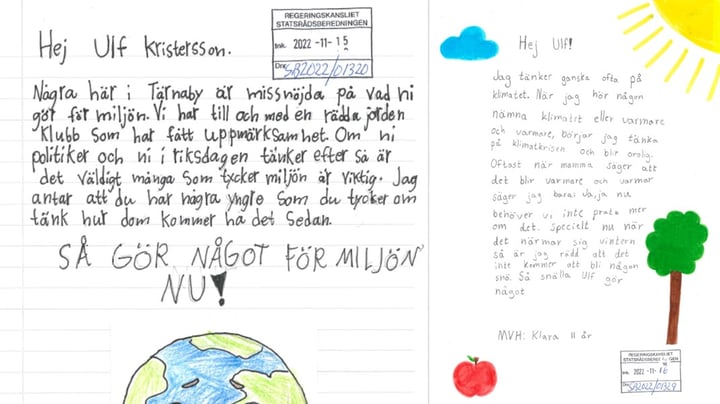 Hej Ulf Kristersson.
REGERINGSKANSLIET
STATSRÅDSBEREDNINGEN
Ink. 2022 -11- 15
Dnr SB2022/01320
Några här i Tärnaby är missnöjda på vad ni
gör för miljön. Vi har till och med en rädda jorden
klubb som har fått uppmärksamhet. Om ni
politiker och ni i riksdagen tänker efter så är
det väldigt många som tycker miljön är viktig. Jag
antar att du har några yngre som du tycker om
tänk hur dom kommer ha det sedan.
SÅ GÖR NÅGOT FÖR MILJÖN
NU!
Hej Ulf!
Jag tänker ganska ofta på
klimatet. När jag hör någon
nämna klimatet eller varmare
och varmare, börjar jag tänka
på klimatkrisen och blir orolig.
Oftast när mamma säger att
det blir varmare och varmar
säger jag bara: Va, ja nu
behöver vi inte prata mer
om det. Speciellt nu när
det närmar sig vintern
så är jag rädd att det
inte kommer att bli någon
snö. Så snälla Ulf gör
något
MVH: Klara 11 år
REGERINGSKANSLIET
Ink. 2022 -11- 16
Dnr SB2022/01329